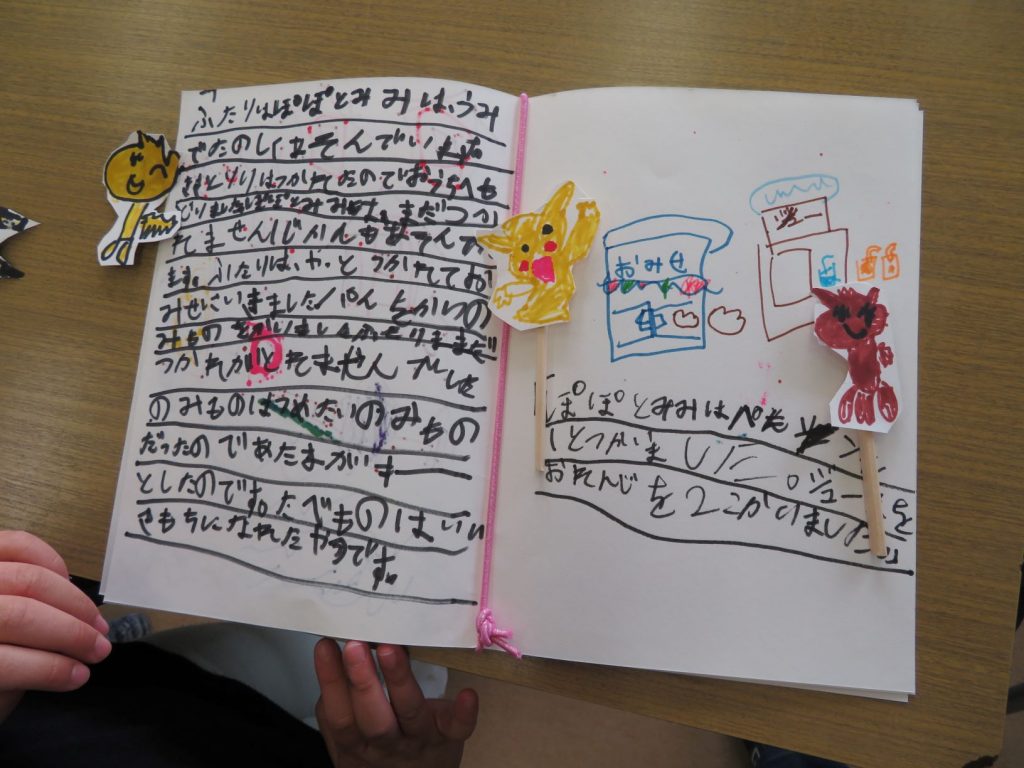 「ふたりはぽぽとみみは、うみ
でたのしくあそんでいます
ふたりはつかれてたのでおうちへも
どりましたぽぽとみみは、まだつか
れません
ます。ふたりは、やっと つかれてお
みせにいきました/パんとかいの
みもの
つかれがとれません
のみものはつめたいのみもの
だったのであたまがす
としたのです。たべものはいい
きもちになれたやつです。
おみせ
ジュー
「ぽぽとみみはぺた
ひとつかいました。ジュースを
おれんじを2こかいました」